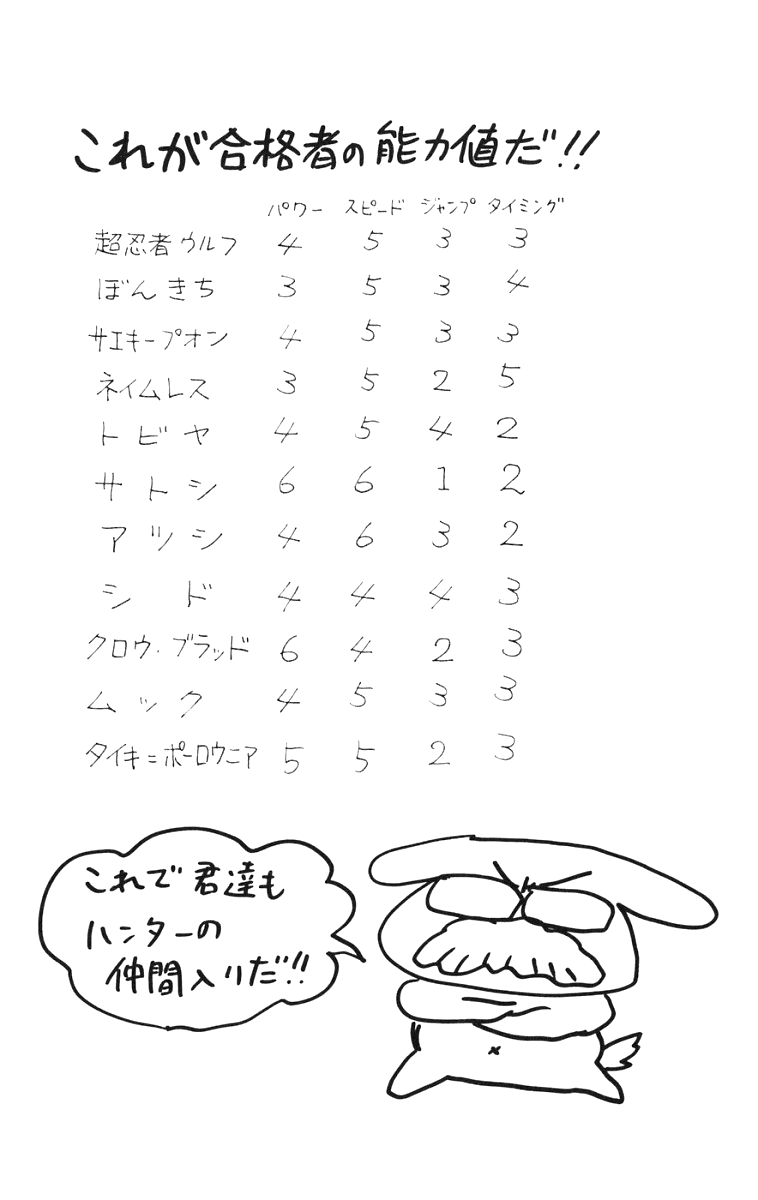 これが合格者の能力値だ!!
パワー スピード ジャンプ タイミング
超忍者ウルフ 4 5 3 3
ぼんきち 3 5 3 4
サエキープオン 4 5 3 3
ネイムレス 3 5 2 5
トビヤ 4 5 4 2
サトシ 6 6 1 2
アツシ 4 6 3 2
シド 4 4 4 3
クロウ・ブラッド 6 4 2 3
ムック 4 5 3 3
タイキ=ポーロウニア 5 5 2 3
これで君達も
ハンターの
仲間入りだ!!